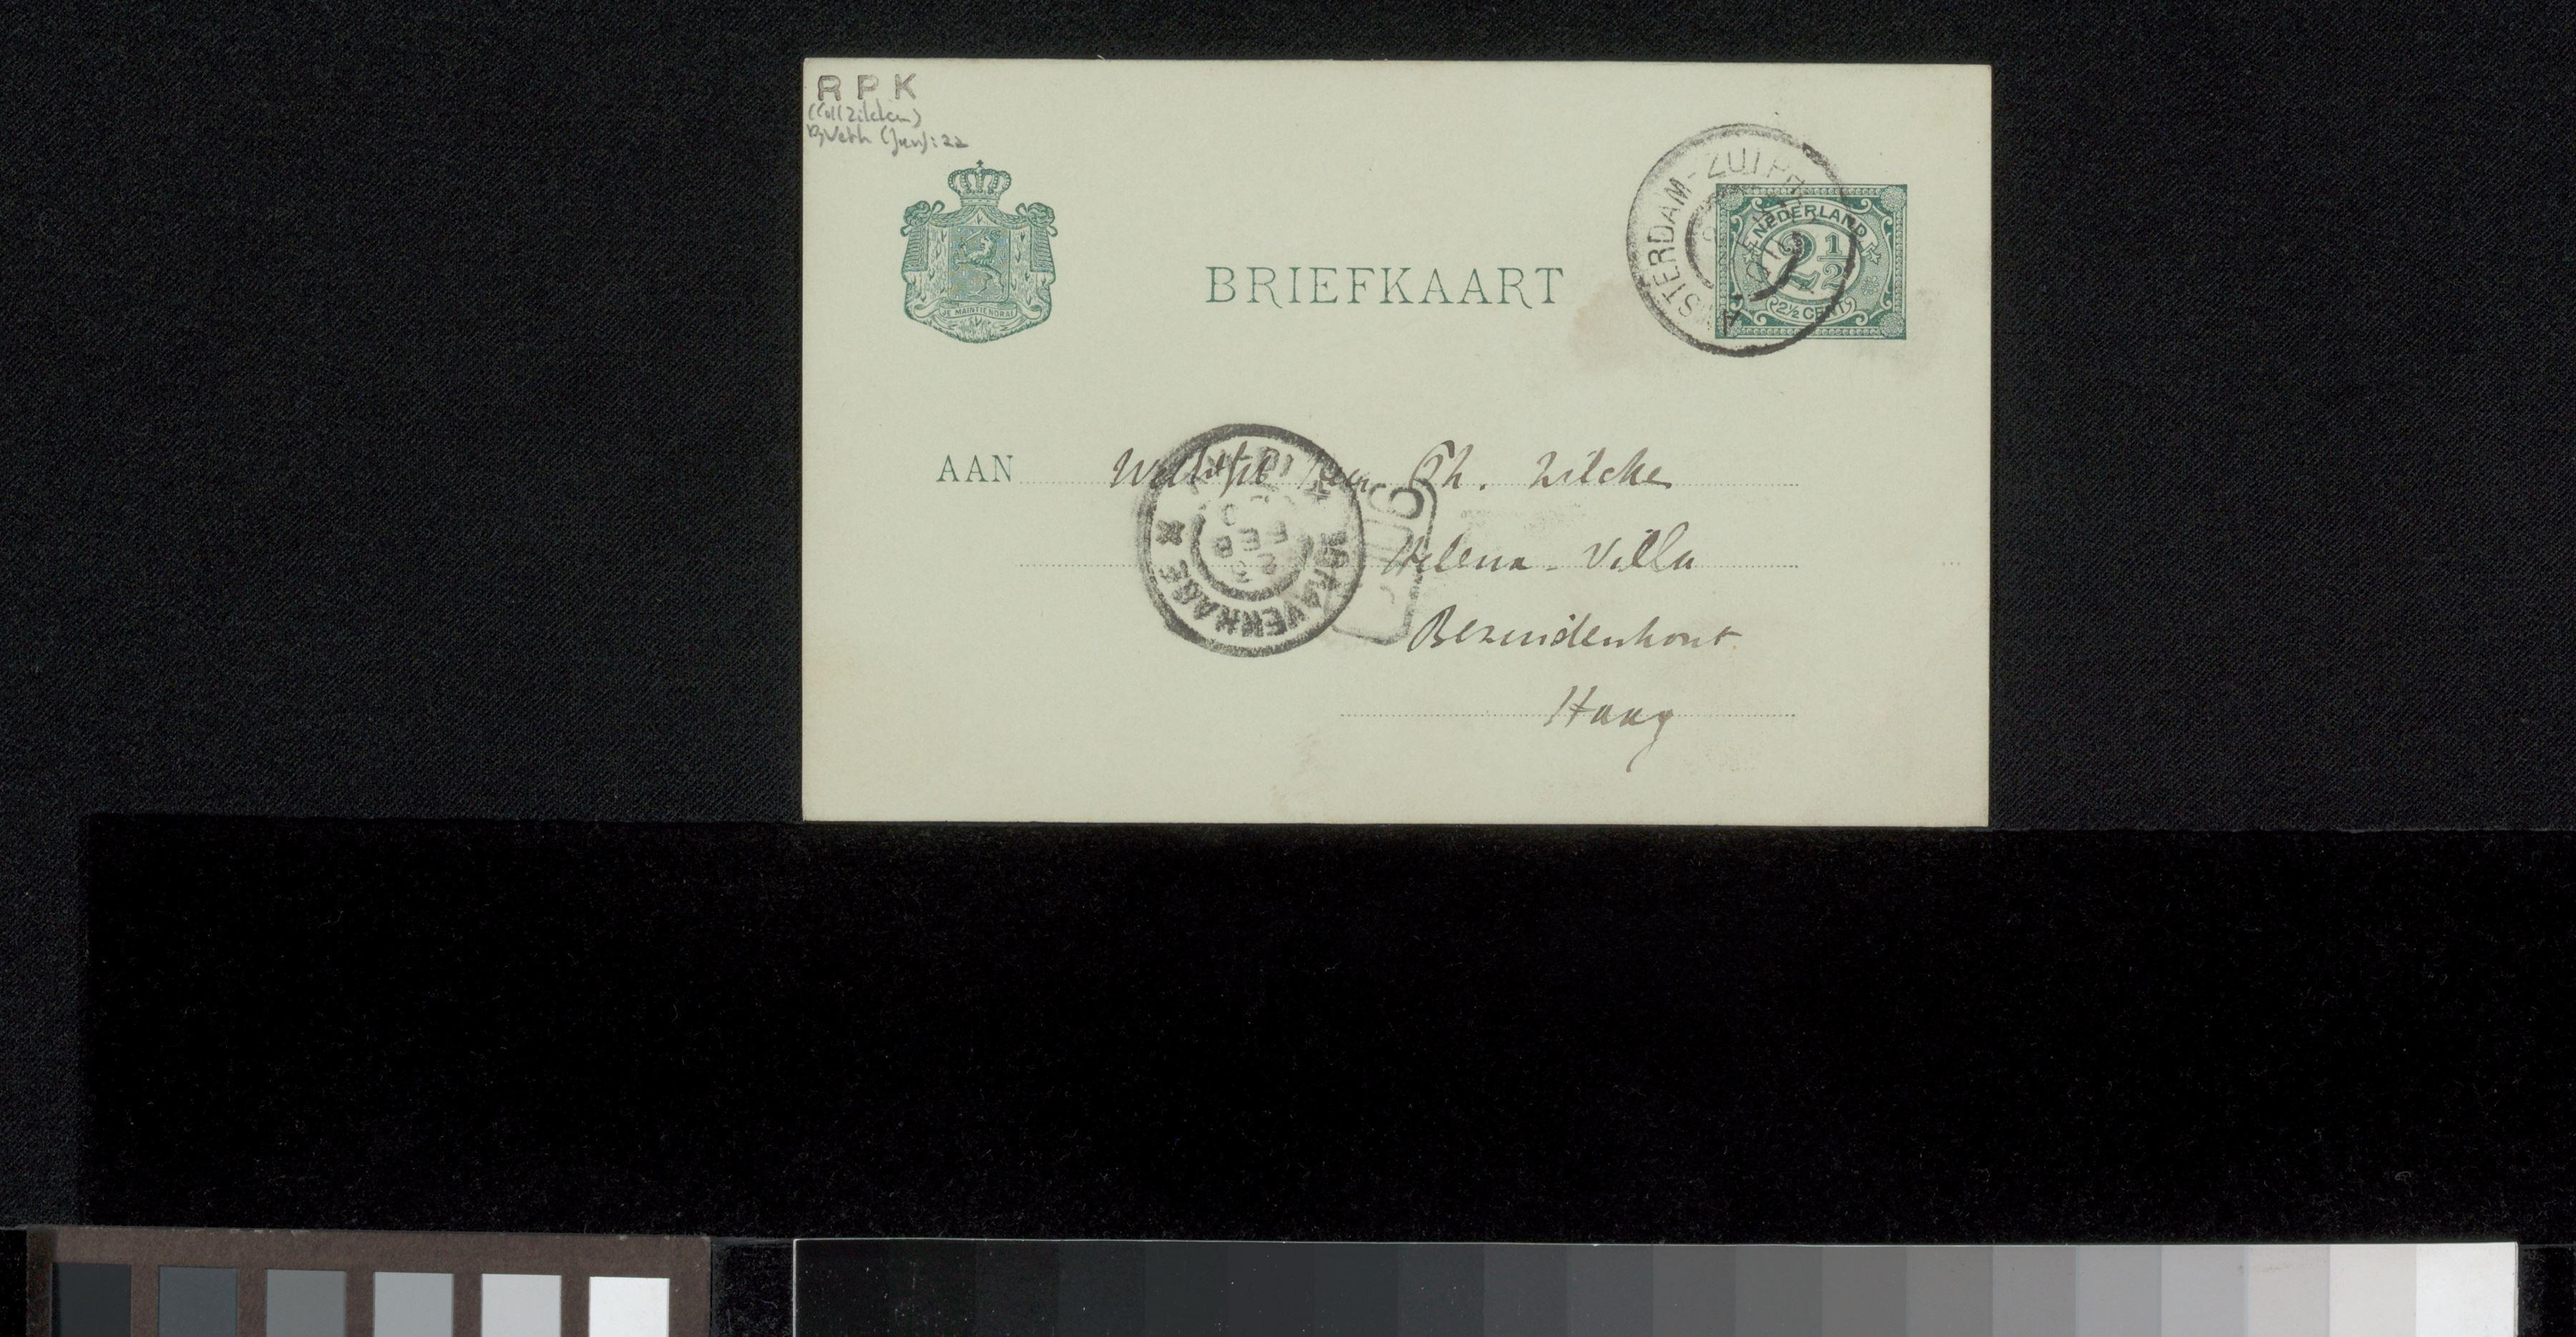 R P K
(Coll Zilcken)
BVeth (Jun): 22
JE MAINTIENDRAI
BRIEFKAART
AMSTERDAM-ZUTPH
NEDERLAND
2 1/2
2½ CENT
AAN Heer Ph. Zilcke
Helena-Villa
Bezuidenhout
Haag
'S GRAVENHAGE
23
FEB